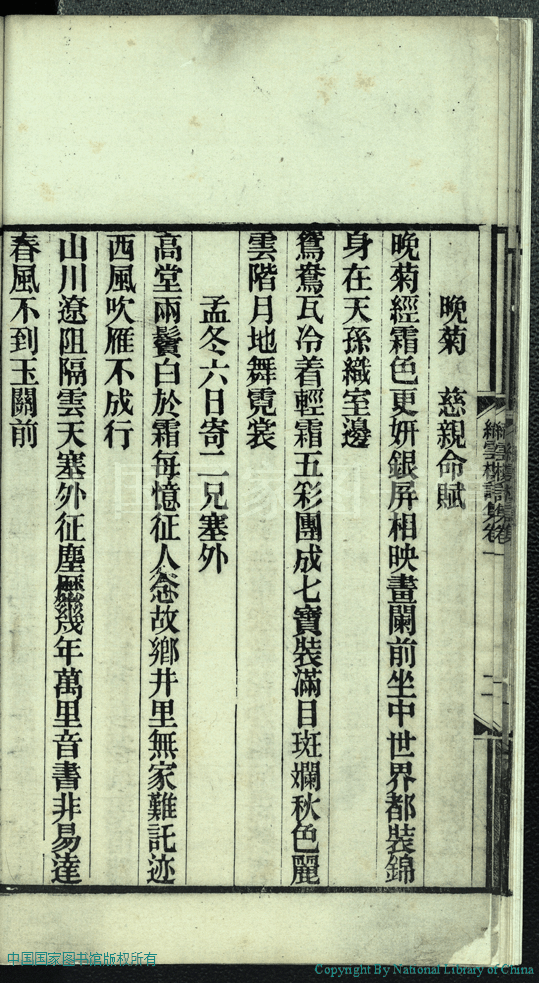 晚菊　慈親命賦
晚菊經霜色更妍銀屏相映畫闌前坐中世界都裝錦
身在天孫織室邊
鴛鴦瓦冷着輕霜五彩團成七寶裝滿目斑斕秋色麗
雲階月地舞霓裳
孟冬六日寄二兄塞外
高堂兩鬢白於霜每憶征人念故鄉井里無家難託迹
西風吹雁不成行
山川遼阻隔雲天塞外征塵歷幾年萬里音書非易達
春風不到玉關前
中国国家图书馆版权所有
Copyright By National Library of China